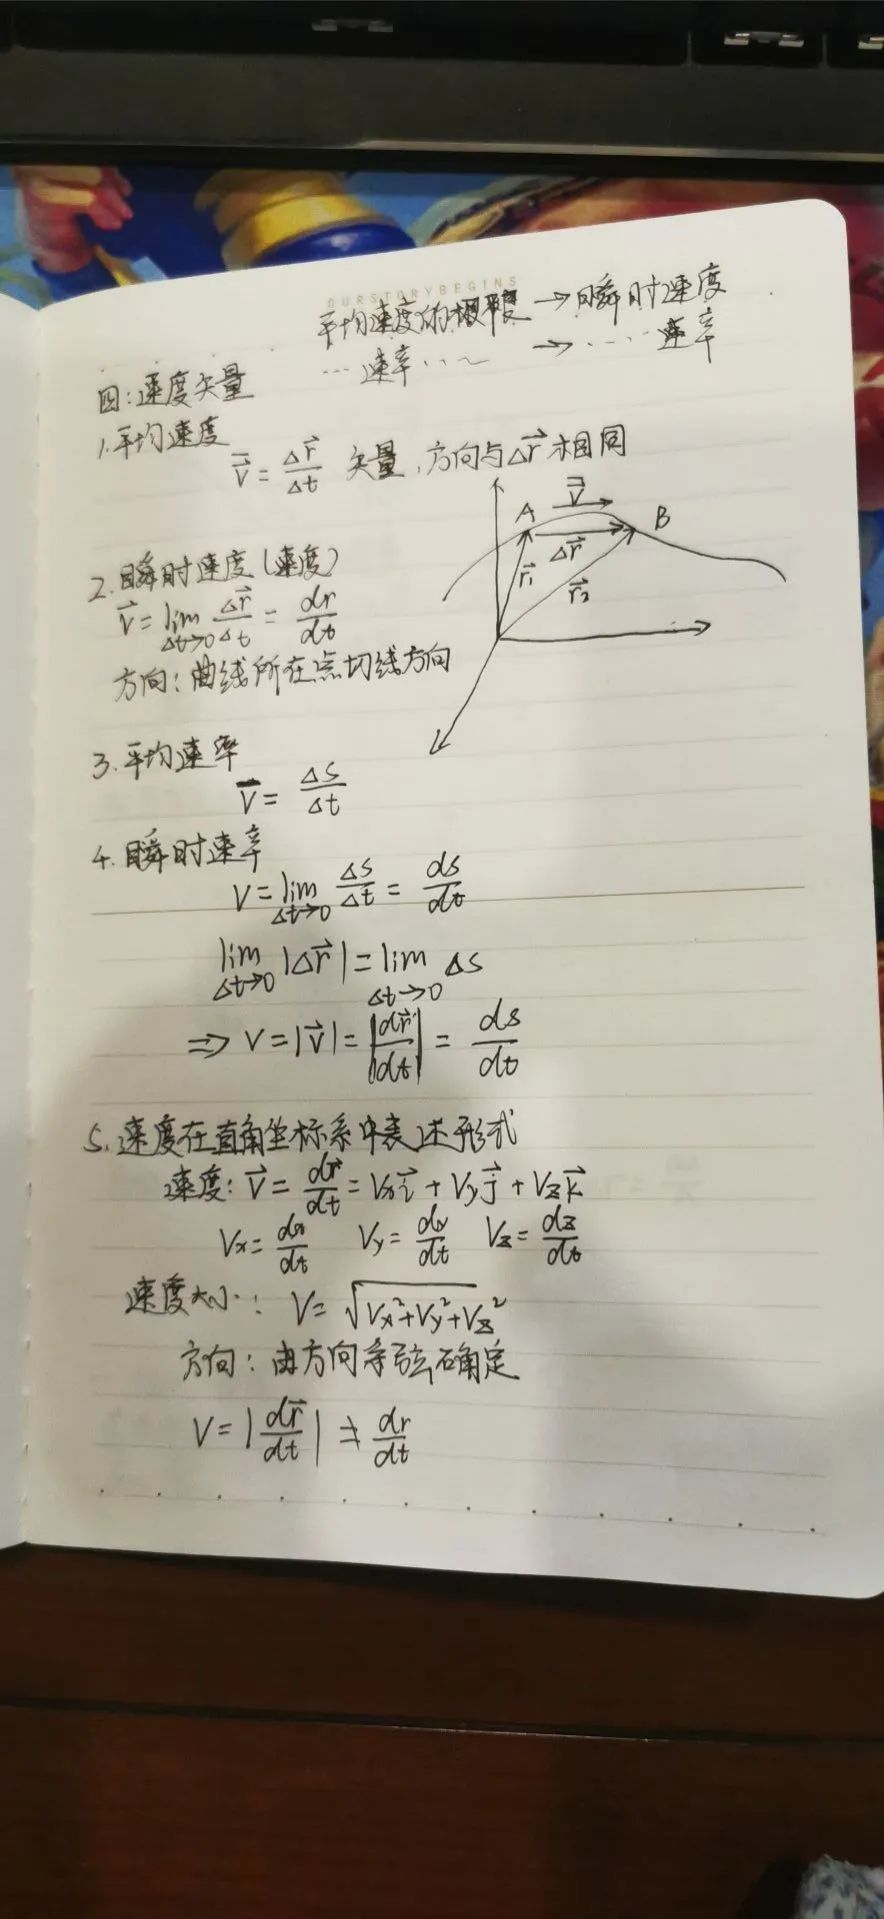 OURSTORYBEGINS
平均速度的极限 → 瞬时速度
… 速率 … → … 速率
四:速度矢量
1.平均速度
\vec{\bar{V}} = \frac{Δ\vec{r}}{Δt} 矢量,方向与Δ\vec{r}相同
A \vec{\bar{V}} B
Δ\vec{r}
\vec{r}₁ \vec{r}₂
2.瞬时速度(速度)
\vec{V} = \lim_{Δt→0} \frac{Δ\vec{r}}{Δt} = \frac{dr}{dt}
方向:曲线所在点切线方向
3.平均速率
\bar{V} = \frac{ΔS}{Δt}
4.瞬时速率
V = \lim_{Δt→0} \frac{ΔS}{Δt} = \frac{ds}{dt}
\lim_{Δt→0} |Δ\vec{r}| = \lim_{Δt→0} ΔS
⇒ V = |\vec{V}| = |\frac{d\vec{r}}{dt}| = \frac{ds}{dt}
5.速度在直角坐标系中表述形式
速度:\vec{V} = \frac{d\vec{r}}{dt} = Vx\vec{i} + Vy\vec{j} + Vz\vec{k}
Vx = \frac{dx}{dt} Vy = \frac{dy}{dt} Vz = \frac{dz}{dt}
速度大小: V = \sqrt{Vx²+Vy²+Vz²}
方向:由方向余弦确定
V = |\frac{d\vec{r}}{dt}| ≠ \frac{dr}{dt}